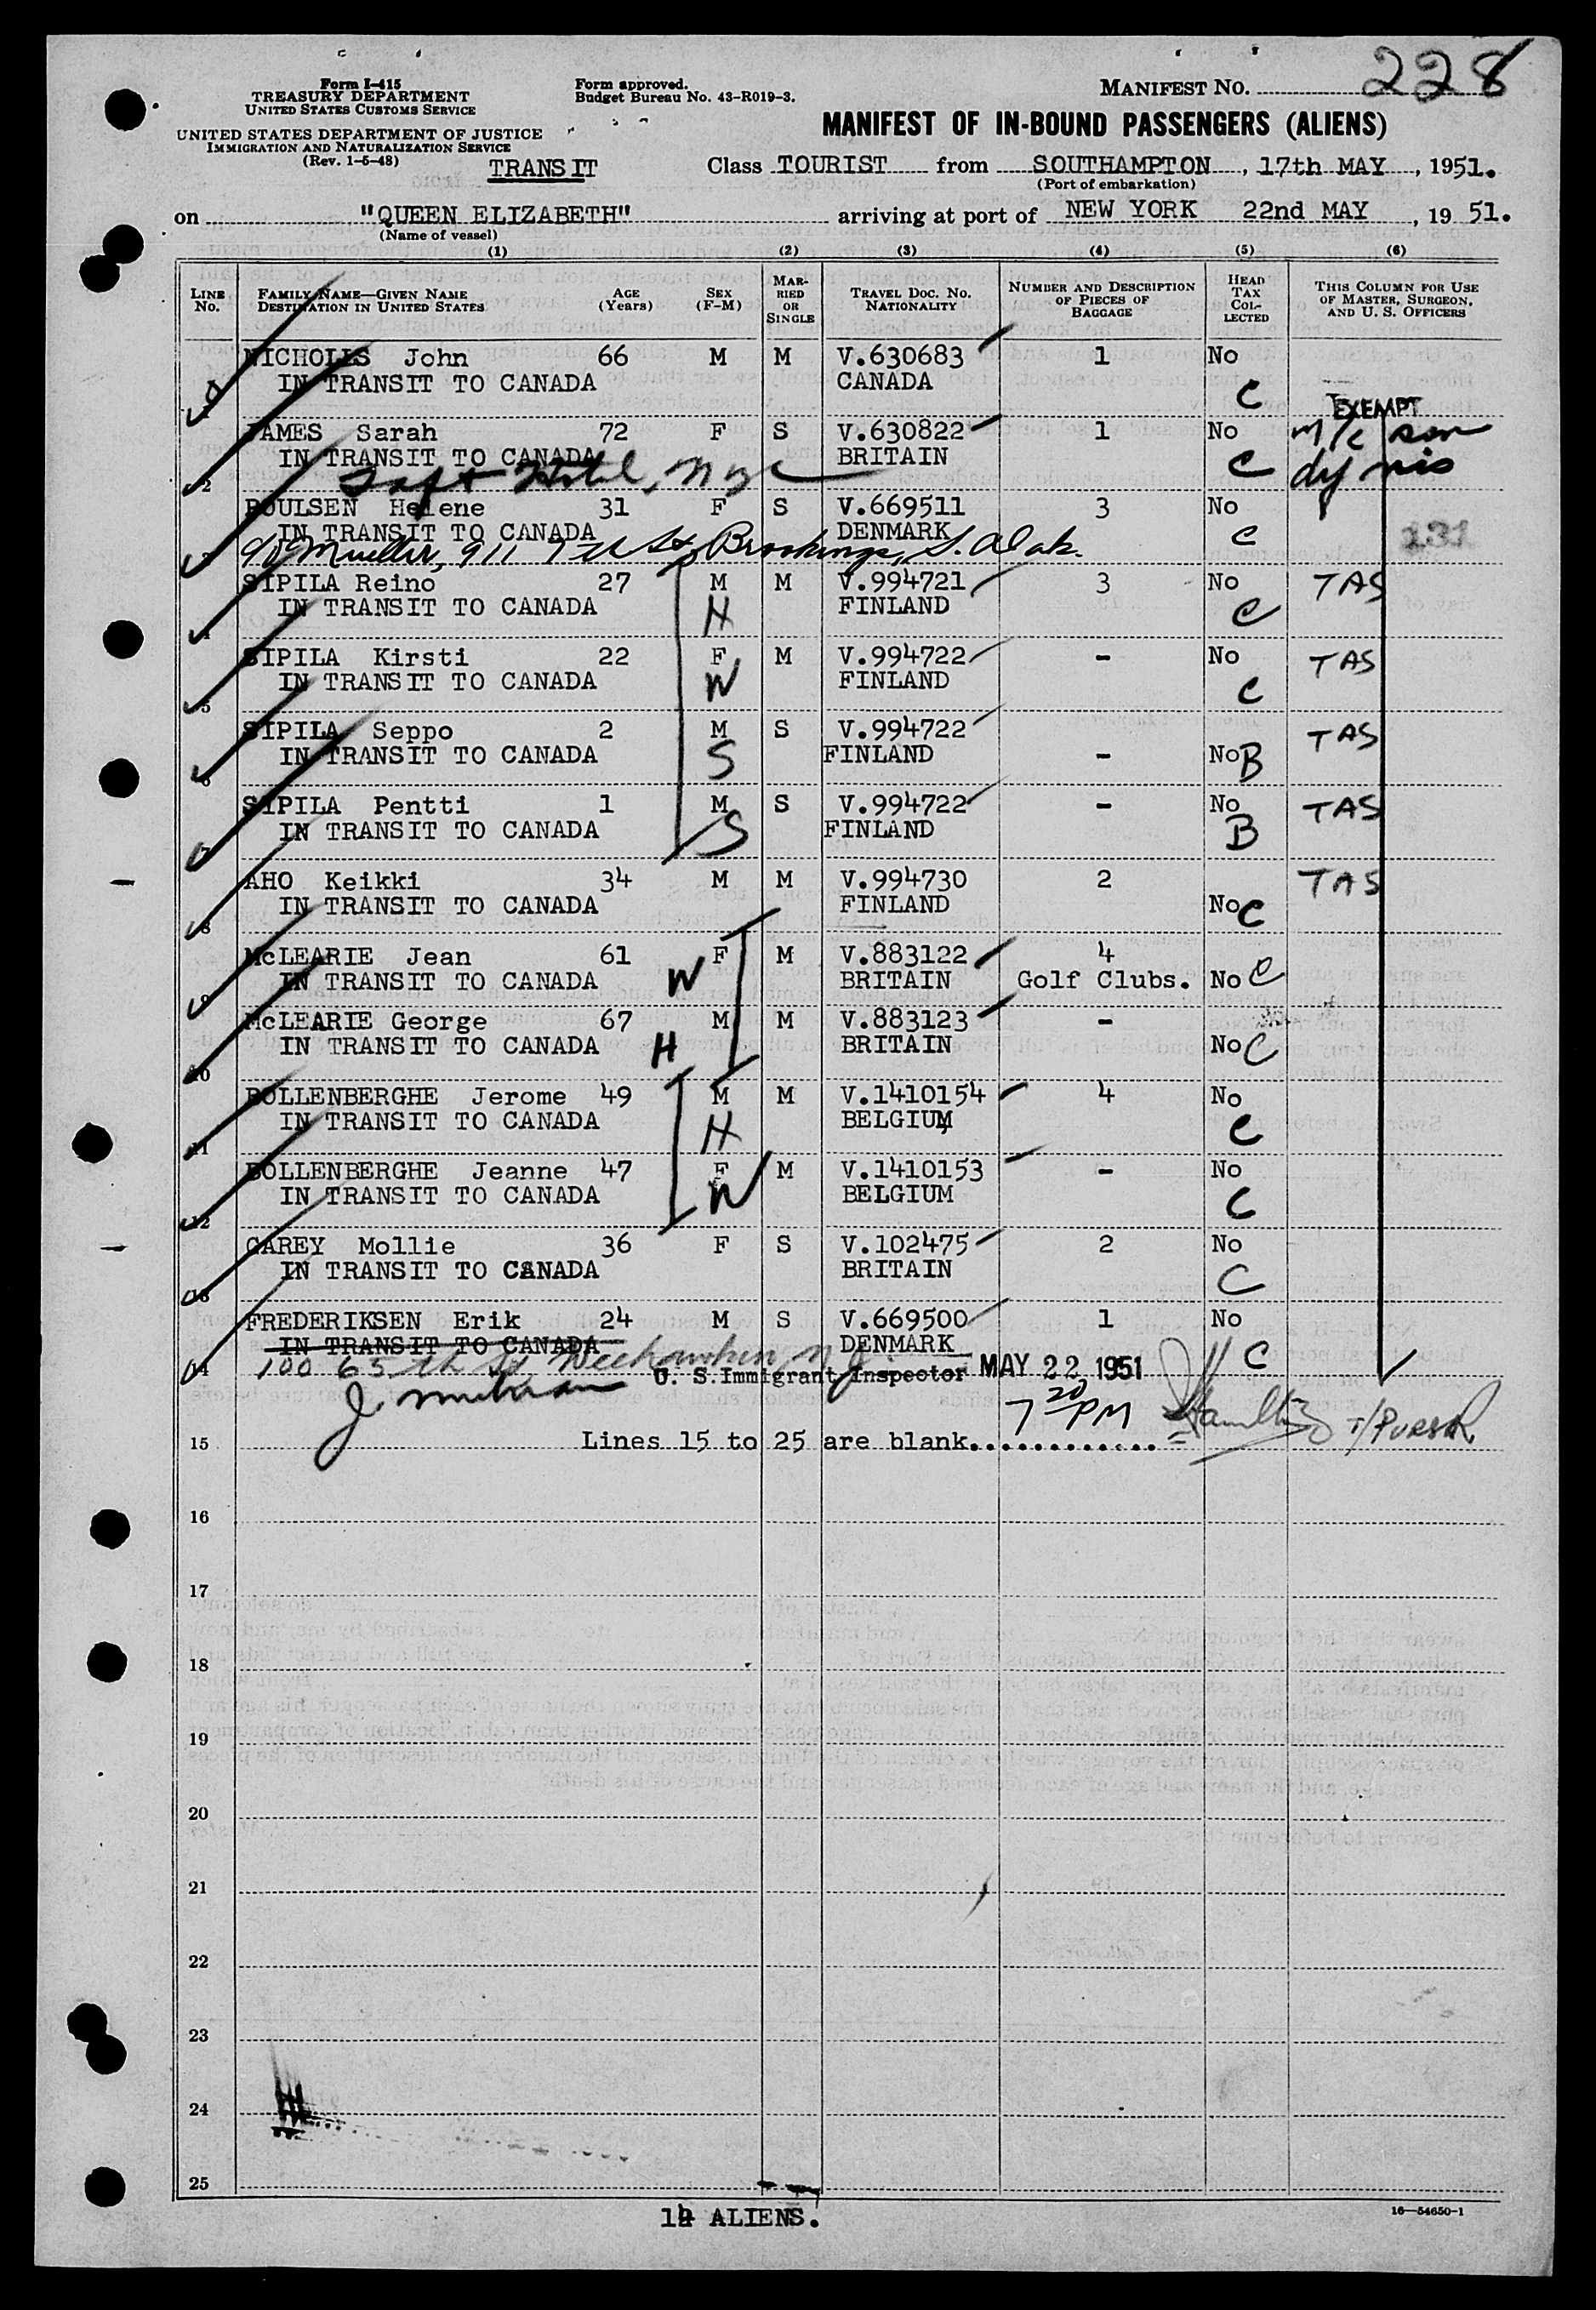 Form I-415
TREASURY DEPARTMENT
UNITED STATES CUSTOMS SERVICE
UNITED STATES DEPARTMENT OF JUSTICE
IMMIGRATION AND NATURALIZATION SERVICE
(Rev. 1-5-48)
TRANSIT
Form approved.
Budget Bureau No. 43-R019-3.
MANIFEST NO. 228
MANIFEST OF IN-BOUND PASSENGERS (ALIENS)
Class TOURIST from SOUTHAMPTON, 17th MAY, 1951.
(Port of embarkation)
on "QUEEN ELIZABETH" arriving at port of NEW YORK 22nd MAY, 19 51.
(Name of vessel)
(1) (2) (3) (4) (5) (6)
LINE No. FAMILY NAME—GIVEN NAME DESTINATION IN UNITED STATES AGE (Years) SEX (F-M) MARRIED OR SINGLE TRAVEL DOC. NO. NATIONALITY NUMBER AND DESCRIPTION OF PIECES OF BAGGAGE HEAD TAX COLLECTED THIS COLUMN FOR USE OF MASTER, SURGEON, AND U. S. OFFICERS
NICHOLLS John 66 M M V.630683 1 No
IN TRANSIT TO CANADA CANADA C
EXEMPT
JAMES Sarah 72 F S V.630822 1 No M/c son
2 IN TRANSIT TO CANADA BRITAIN C
Taft Hotel, NYC
POULSEN Helene 31 F S V.669511 3 No
IN TRANSIT TO CANADA DENMARK C 131
c/o Mueller, 911 7th St, Brookings, S. Dak.
SIPILA Reino 27 M M V.994721 3 No TAS
4 IN TRANSIT TO CANADA H FINLAND C
SIPILA Kirsti 22 F M V.994722 - No TAS
5 IN TRANSIT TO CANADA W FINLAND C
SIPILA Seppo 2 M S V.994722 TAS
6 IN TRANSIT TO CANADA S FINLAND - No B
SIPILA Pentti 1 M S V.994722 - No TAS
7 IN TRANSIT TO CANADA S FINLAND B
AHO Keikki 34 M M V.994730 2 TAS
8 IN TRANSIT TO CANADA FINLAND No C
McLEARIE Jean 61 F M V.883122 4
9 IN TRANSIT TO CANADA W BRITAIN Golf Clubs. No C
McLEARIE George 67 M M V.883123 -
10 IN TRANSIT TO CANADA H BRITAIN No C
BOLLENBERGHE Jerome 49 M M V.1410154 4 No
11 IN TRANSIT TO CANADA H BELGIUM C
BOLLENBERGHE Jeanne 47 F M V.1410153 - No
12 IN TRANSIT TO CANADA W BELGIUM C
CAREY Mollie 36 F S V.102475 2 No
13 IN TRANSIT TO CANADA BRITAIN C
FREDERIKSEN Erik 24 M S V.669500 1 No
IN TRANSIT TO CANADA DENMARK C
14 100 65th St Weehawken, N.J.
U. S. Immigrant Inspector MAY 22 1951
7 30 PM Hamilton T/Purser
15 Lines 15 to 25 are blank............
16
17
18
19
20
21
22
23
24
25
14 ALIENS.
16—54650-1